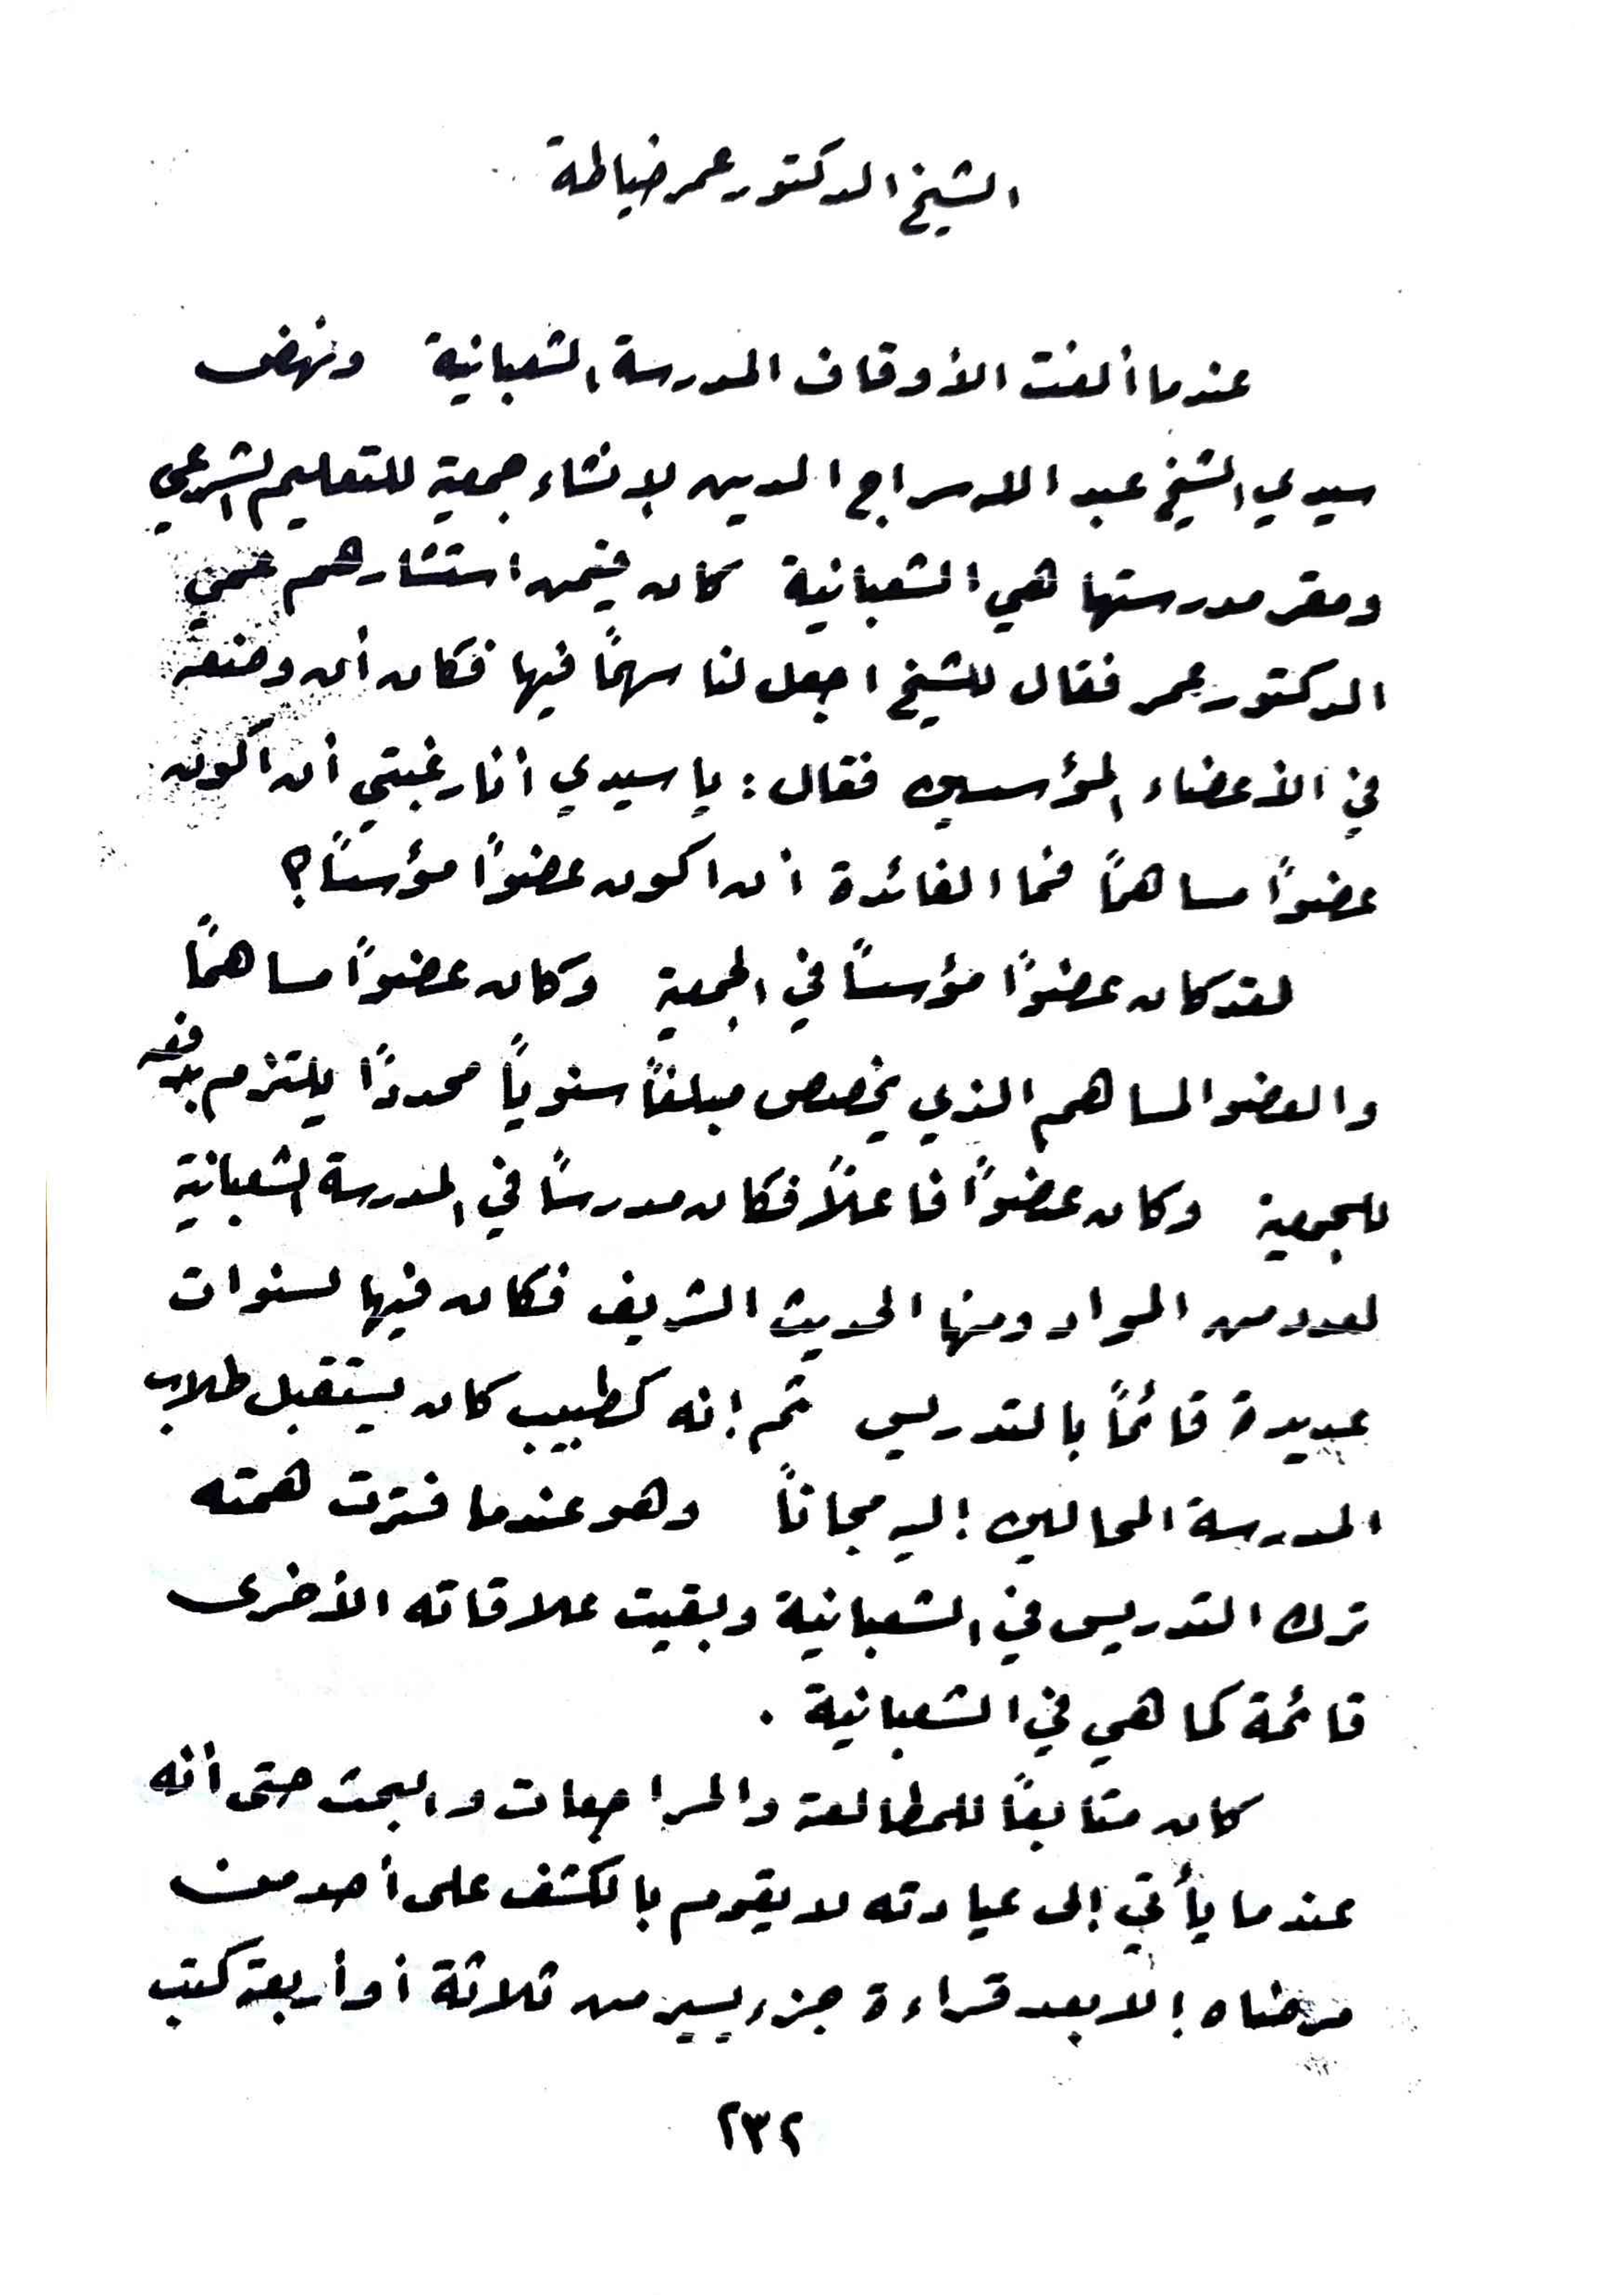 الشيخ الدكتور عمر خياطة
عندما ألغت الأوقاف المدرسة الشعبانية ونهض
سيدي الشيخ عبد الله سراج الدين لإنشاء جمعية للتعليم الشرعي
ومقر مدرستها هي الشعبانية كان فيمن استشارهم عمي
الدكتور عمر فقال للشيخ اجعل لنا سهماً فيها فكان أن وضعه
في الأعضاء المؤسسين فقال : يا سيدي أنا رغبتي أن اكون
عضواً مساهماً فما الفائدة أن اكون عضواً مؤسساً؟
لقد كان عضواً مؤسساً في الجمعية وكان عضواً مساهماً
والعضو المساهم الذي يخصص مبلغاً سنوياً محدداً يلتزم بدفعه
للجمعية وكان عضواً فاعلاً فكان مدرساً في المدرسة الشعبانية
لعدد من المواد ومنها الحديث الشريف فكان فيها لسنوات
عديدة قائماً بالتدريس ثم إنه كطبيب كان يستقبل طلاب
المدرسة المحالين إليه مجاناً وهو عندما فترت همته
ترك التدريس في الشعبانية وبقيت علاقاته الأخرى
قائمة كما هي في الشعبانية .
كان متابعاً للمطالعة والمراجعات والبحث حتى أنه
عندما يأتي إلى عيادته لا يقوم بالكشف على أحد من
مرضاه إلا بعد قراءة جزء يسير من ثلاثة أو أربعة كتب
٢٣٢